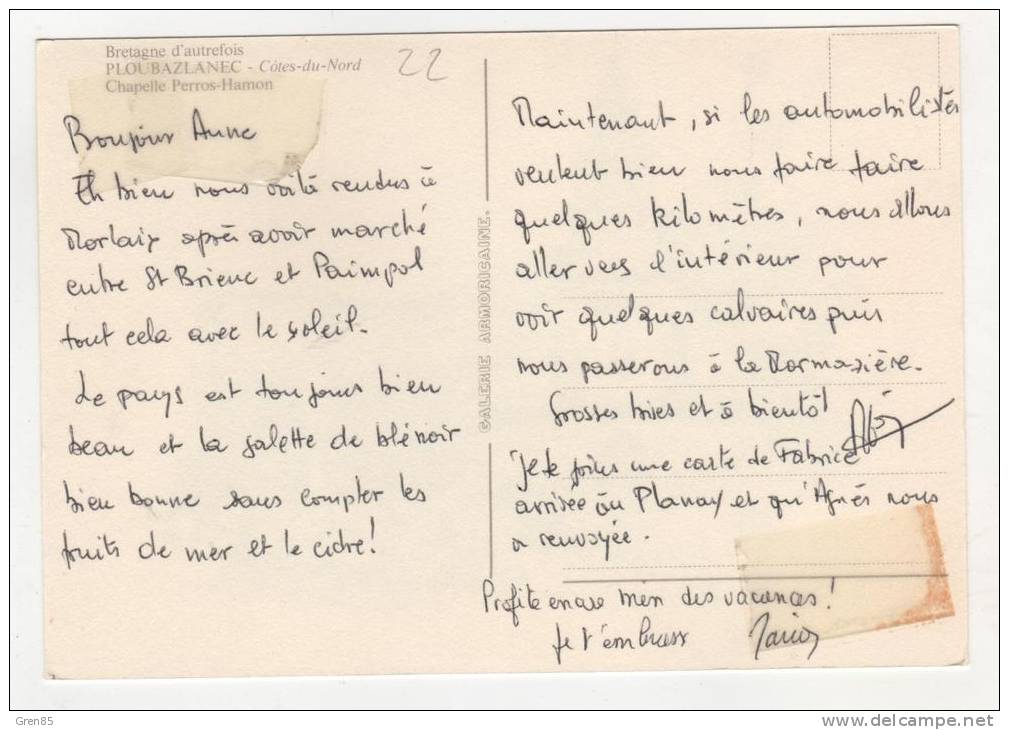 Bretagne d'autrefois
PLOUBAZLANEC - Côtes-du-Nord
Chapelle Perros-Hamon
22
Bonjour Anne
Eh bien nous voilà rendus à
Morlaix après avoir marché
entre St Brieuc et Paimpol
tout cela avec le soleil.
Le pays est toujours bien
beau et la galette de blé noir
bien bonne sans compter les
fruits de mer et le cidre!
GALERIE ARMORICAINE.
Maintenant, si les automobilistes
veulent bien nous faire faire
quelques kilomètres, nous allons
aller vers l'intérieur pour
voir quelques calvaires puis
nous passerons à la
Grosses bises et à bientôt
Je te joins une carte de Fabrice
arrivée au Planay et qu'Agnès nous
a renvoyée.
Profite encore bien des vacances!
Je t'embrasse
Gren85
www.delcampe.net